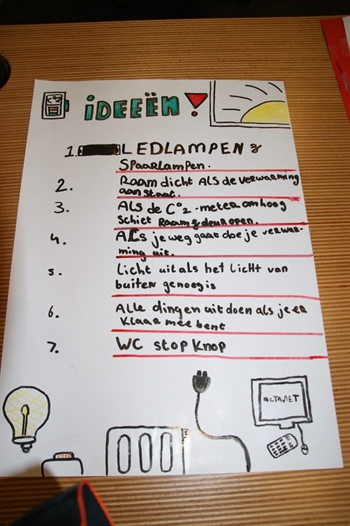 IDEEËN!
1. LEDLAMPEN &
SPAARLAMPEN.
2. RAAM DICHT ALS DE VERWARMING
AAN STAAT.
3. ALS DE C°2-METER OMHOOG
SCHIET RAAM & DEUR OPEN.
4. ALS je weg gaat doe je verwar-
ming uit.
5. Licht uit als het licht van
buiten genoeg is
6. Alle dingen uit doen als je er
klaar mee bent
7. WC stop knop
ACTANET